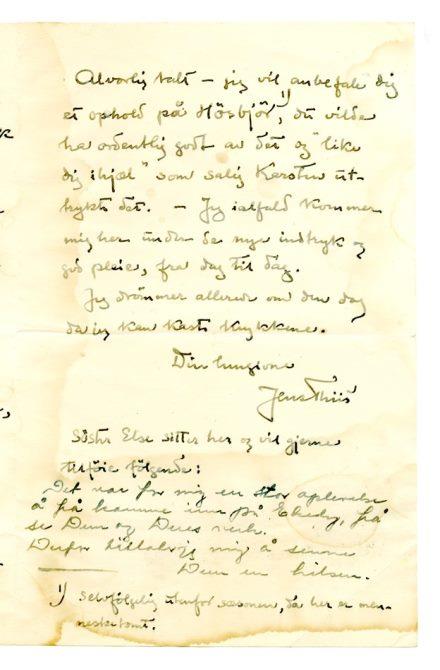 Alvorlig talt – jeg vil anbefale dig
et ophold på Hösbjör,¹⁾ du vilde
ha ordentlig godt av det og "like
dig ihjæl" som salig Karsten ut-
trykte det. – Jeg ialfald kommer
mig her under de nye indtryk og
god pleie, fra dag til dag.
Jeg drömmer allerede om den dag
da jeg kan kaste krykkene.
Din hengivne
Jens Thiis
Söster Else sitter her og vil gjerne
tilföie fölgende:
Det var for mig en stor oplevelse
å få komme inn på Ekely, få
se Dem og Deres verk.
Derfor tillater jeg mig å sende
Dem en hilsen.
1) selvfölgelig utenfor sæsonen, da her er men-
nesketomt.